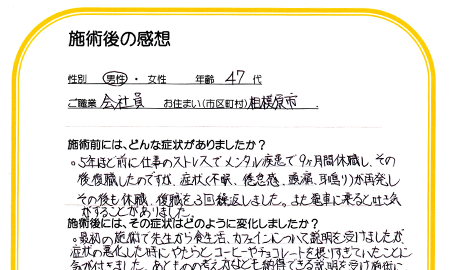 施術後の感想
性別 男性 ・ 女性 年齢 47 代
ご職業 会社員 お住まい(市区町村)相模原市
施術前には、どんな症状がありましたか？
。5年ほど前に仕事のストスでメンタル疾患で9ヶ月間休職し、その
後復職したのですが、症状(不眠、倦怠感、頭痛、耳鳴り)が再発し
その後も休職、復職を3回繰返しました。また電車に乗ると吐き気
がすることがありました。
施術後には、その症状はどのように変化しましたか？
。最初の施術で先生から食生活、カフェインについて説明を受けましたが、
症状の悪化した時にやたらとコーヒーやチョコレートを摂りすぎていたことに
気が付きました。あともの考え方なども納得できる説明を受け施術に